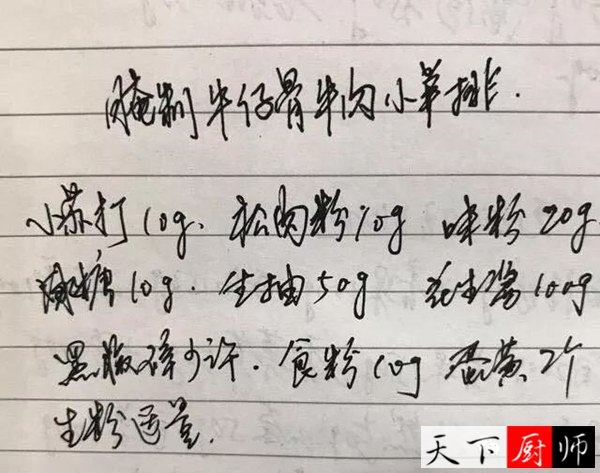 腌制牛仔骨牛肉小羊排.
小苏打10g、松肉粉10g 味粉20g
砂糖10g. 生抽50g 花生酱100g
黑椒碎少许. 食粉10g 蛋黄2个
生粉适量.
天下厨师